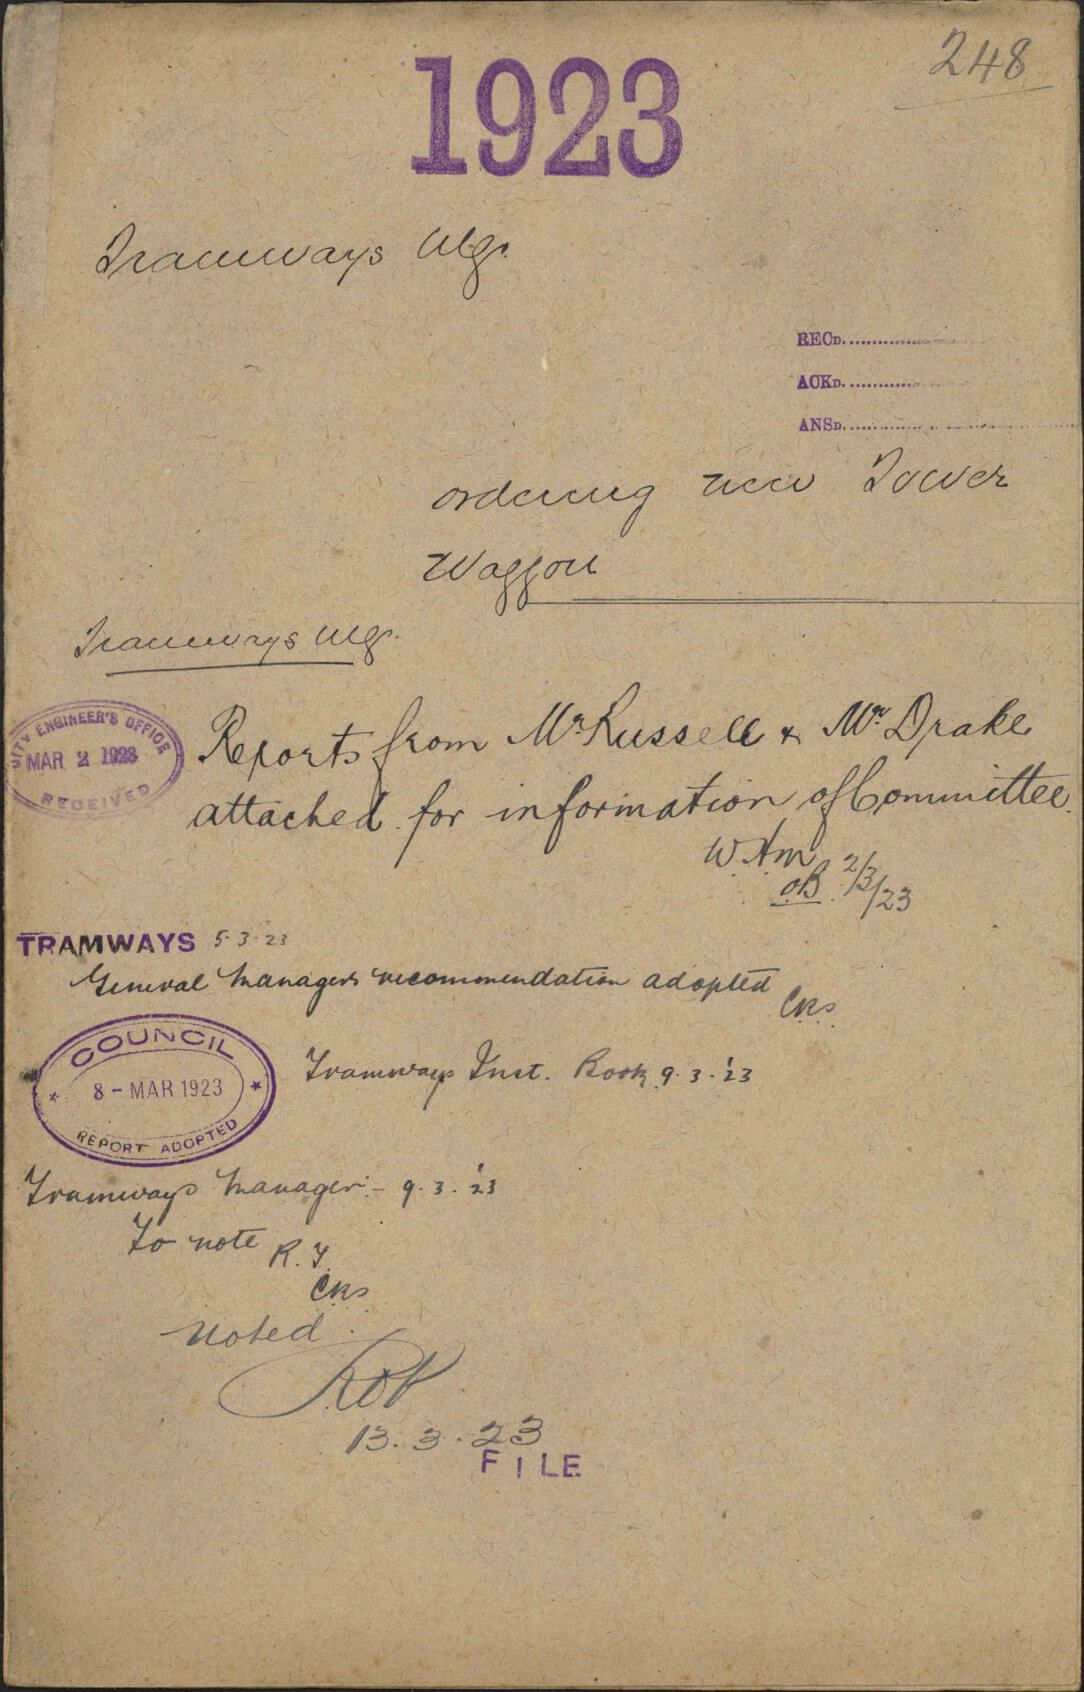 248
1923
Tramways Mgr.
RECD.
ACKD.
ANSD.
ordering new Tower
Waggon
Tramways Mgr.
CITY ENGINEER'S OFFICE
MAR 2 1923
RECEIVED
Reports from Mr Russell & Mr Drake
attached for information of Committee.
2/3/23
TRAMWAYS 5.3.23
General Managers recommendation adopted
CRS
COUNCIL
8 - MAR 1923
REPORT ADOPTED
Tramways Inst. Book 9.3.'23
Tramways Manager:- 9.3.'23
To note R.T.
CRS
Noted.
13.3.23
FILE